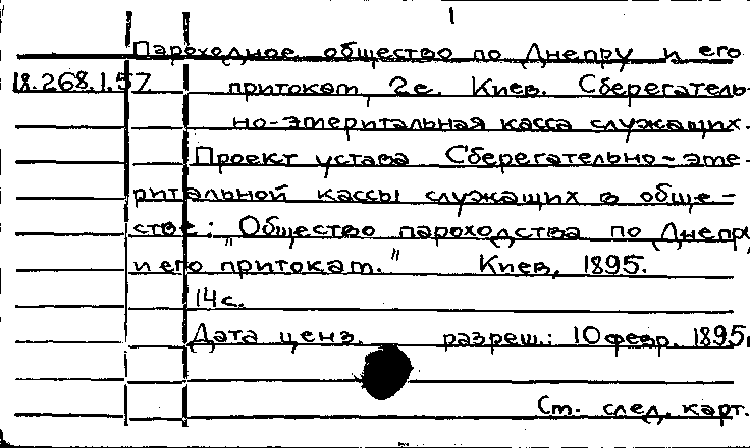 1
Пароходное общество по Днепру и его
18.268.1.57 притокам, 2е. Киев. Сберегатель-
но-эмеритальная касса служащих.
Проект устава Сберегательно-эме-
ритальной кассы служащих в обще-
стве: „Общество пароходства по Днепру
и его притокам." Киев, 1895.
14с.
Дата ценз. разреш.: 10 февр. 1895.
См. след. карт.